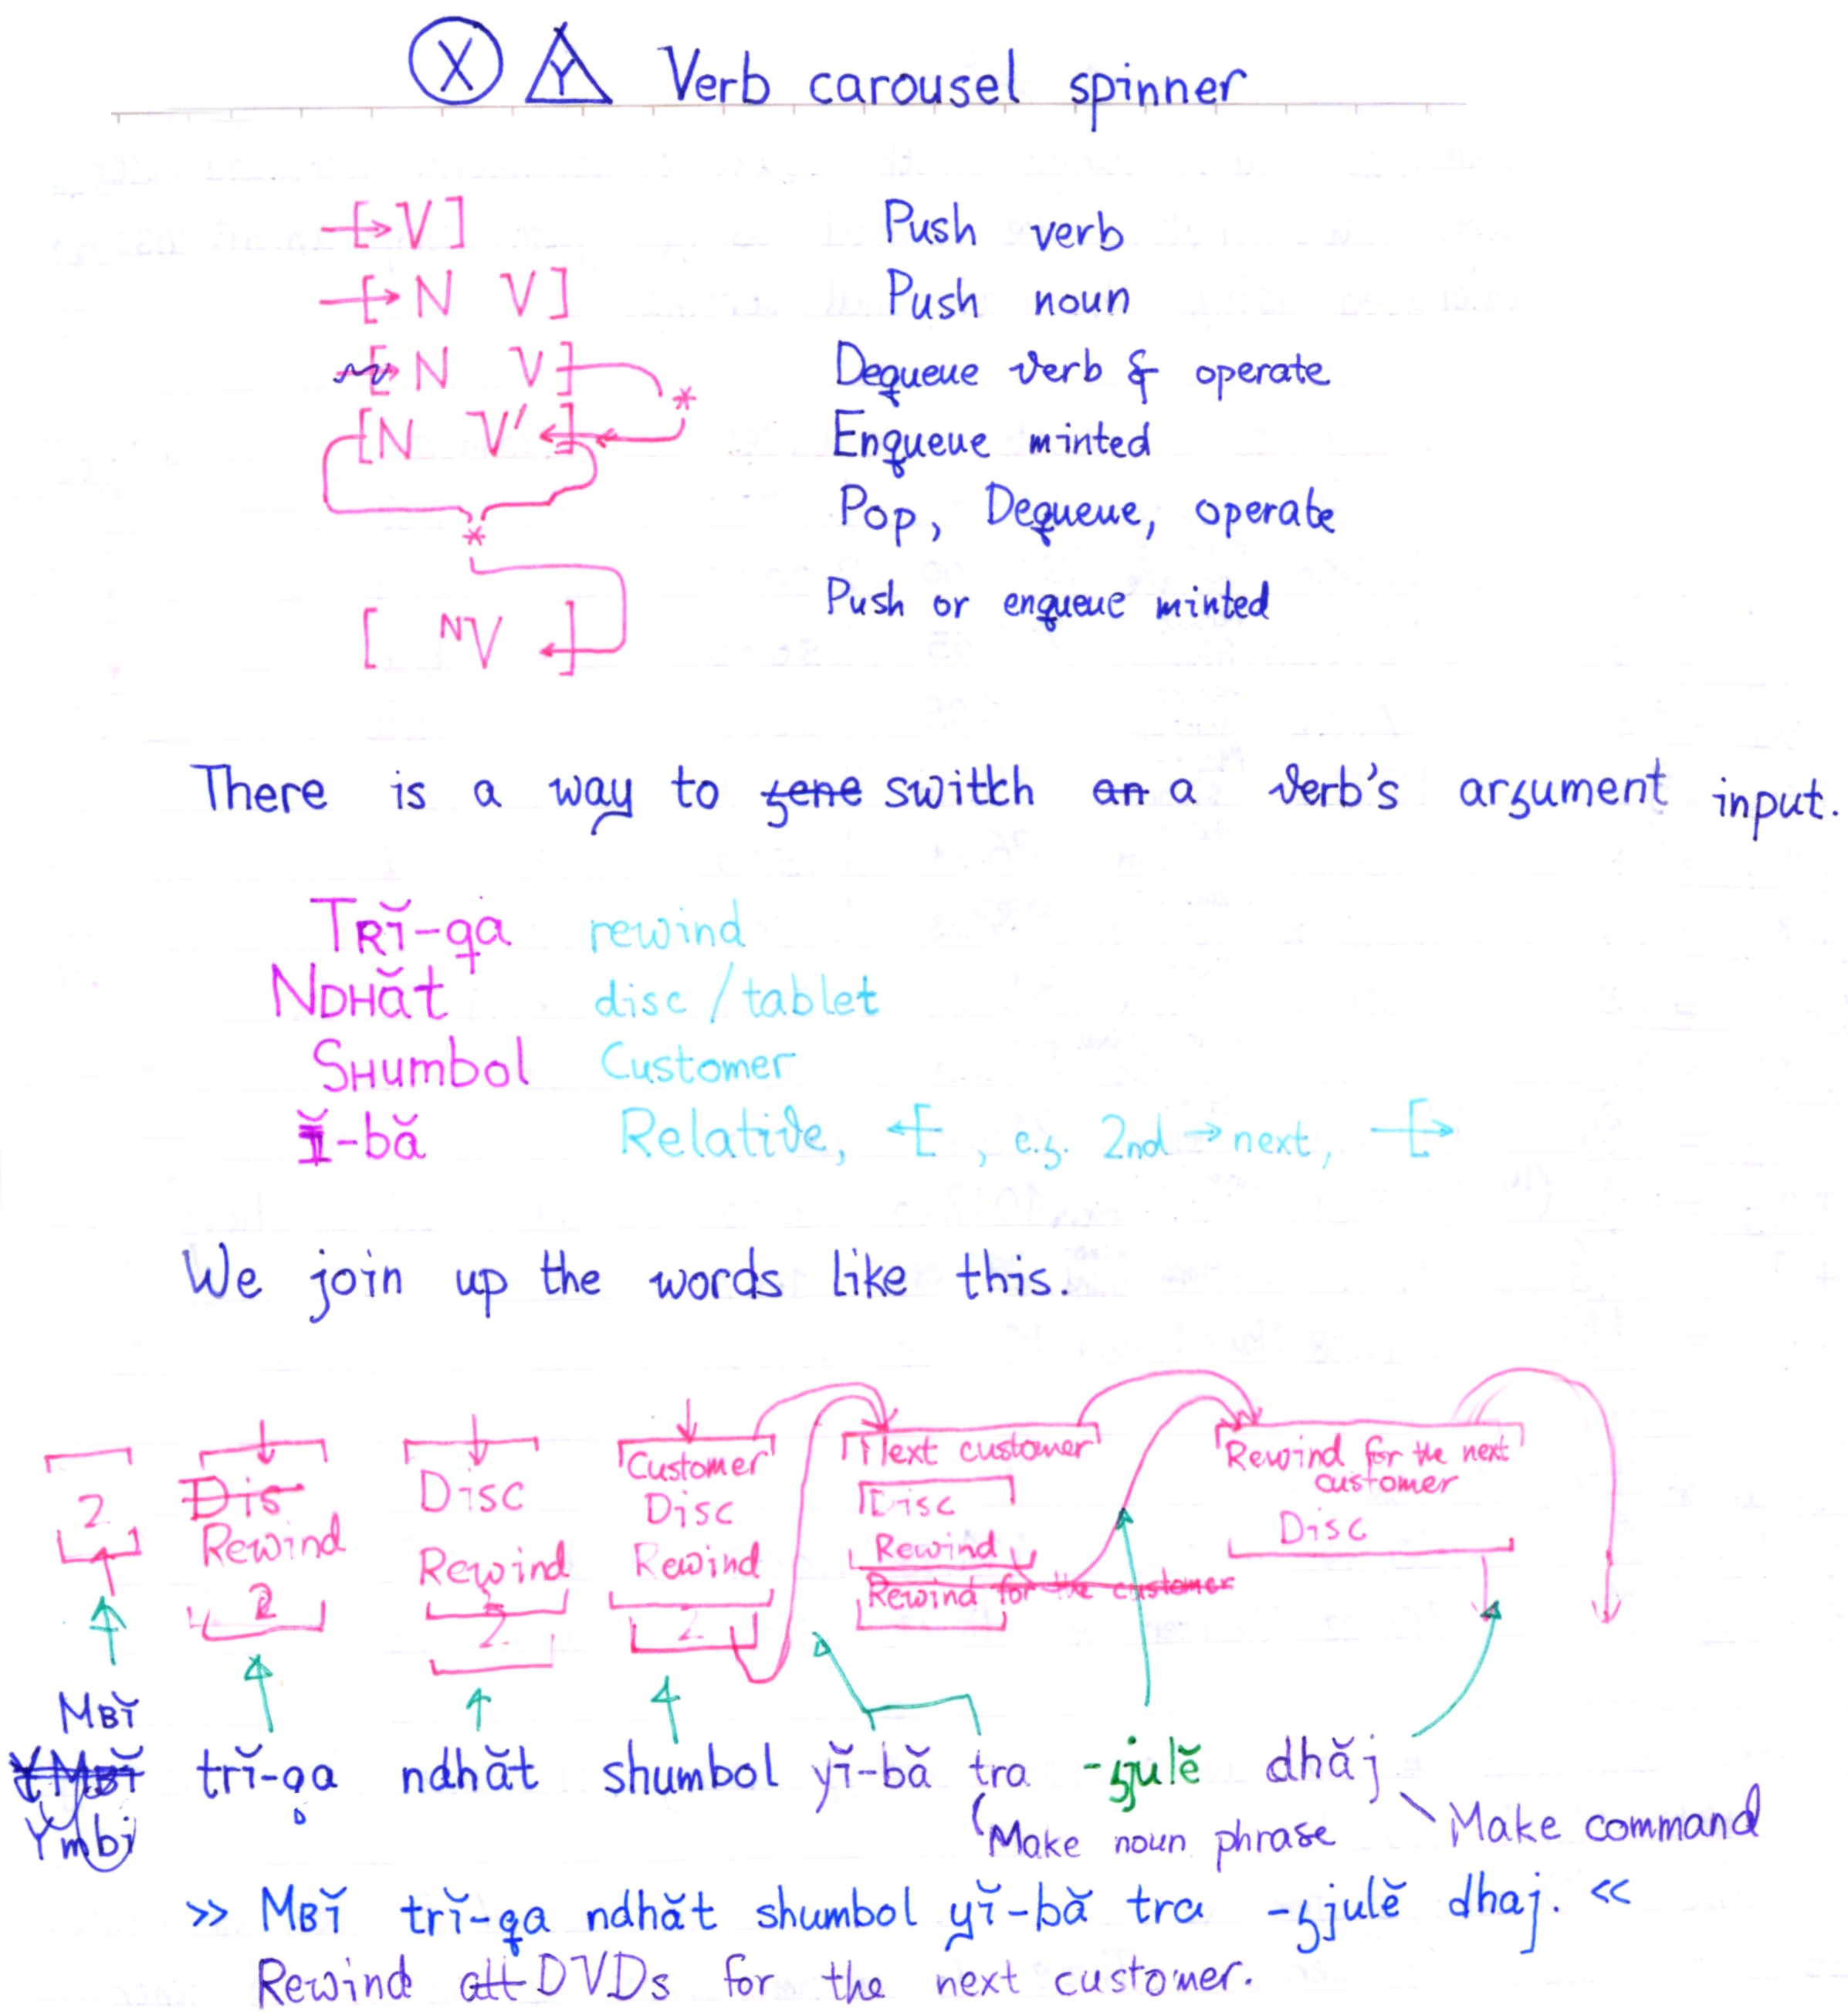 X Y Verb carousel spinner
[→V] Push verb
[→N V] Push noun
[→N V] * Dequeue verb & operate
[N V′←] Enqueue minted
* Pop, Dequeue, operate
[ NV ←] Push or enqueue minted
There is a way to gene switch an a verb's argument input.
Trĭ-qa rewind
Ndhăt disc / tablet
Shumbol Customer
Ĭ-bă Relative, ←[ , e.g. 2nd → next, [→
We join up the words like this.
2
Dis
Rewind
2
Disc
Rewind
2
Customer
Disc
Rewind
2
Next customer
Disc
Rewind
Rewind for the customer
Rewind for the next
customer
Disc
Mbĭ
YMbĭ trĭ-qa ndhăt shumbol yĭ-bă tra -gjulĕ dhăj
Ymbi Make noun phrase Make command
>> Mbĭ trĭ-qa ndhăt shumbol yĭ-bă tra -gjulĕ dhaj. <<
Rewind all DVDs for the next customer.